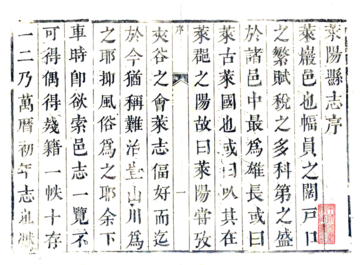 萊陽縣志序
萊巖邑也幅員之闊戶口
之繁賦稅之多科第之盛
於諸邑中最為雄長或曰
萊古萊國也或曰以其在
萊郡之陽故曰萊陽嘗攷
序
一
夾谷之會萊志偪好而迄
於今猶稱難治豈山川為
之耶抑風俗為之耶余下
車時即欲索邑志一覽不
可得偶得殘籍一帙十存
一二乃萬曆初年志也